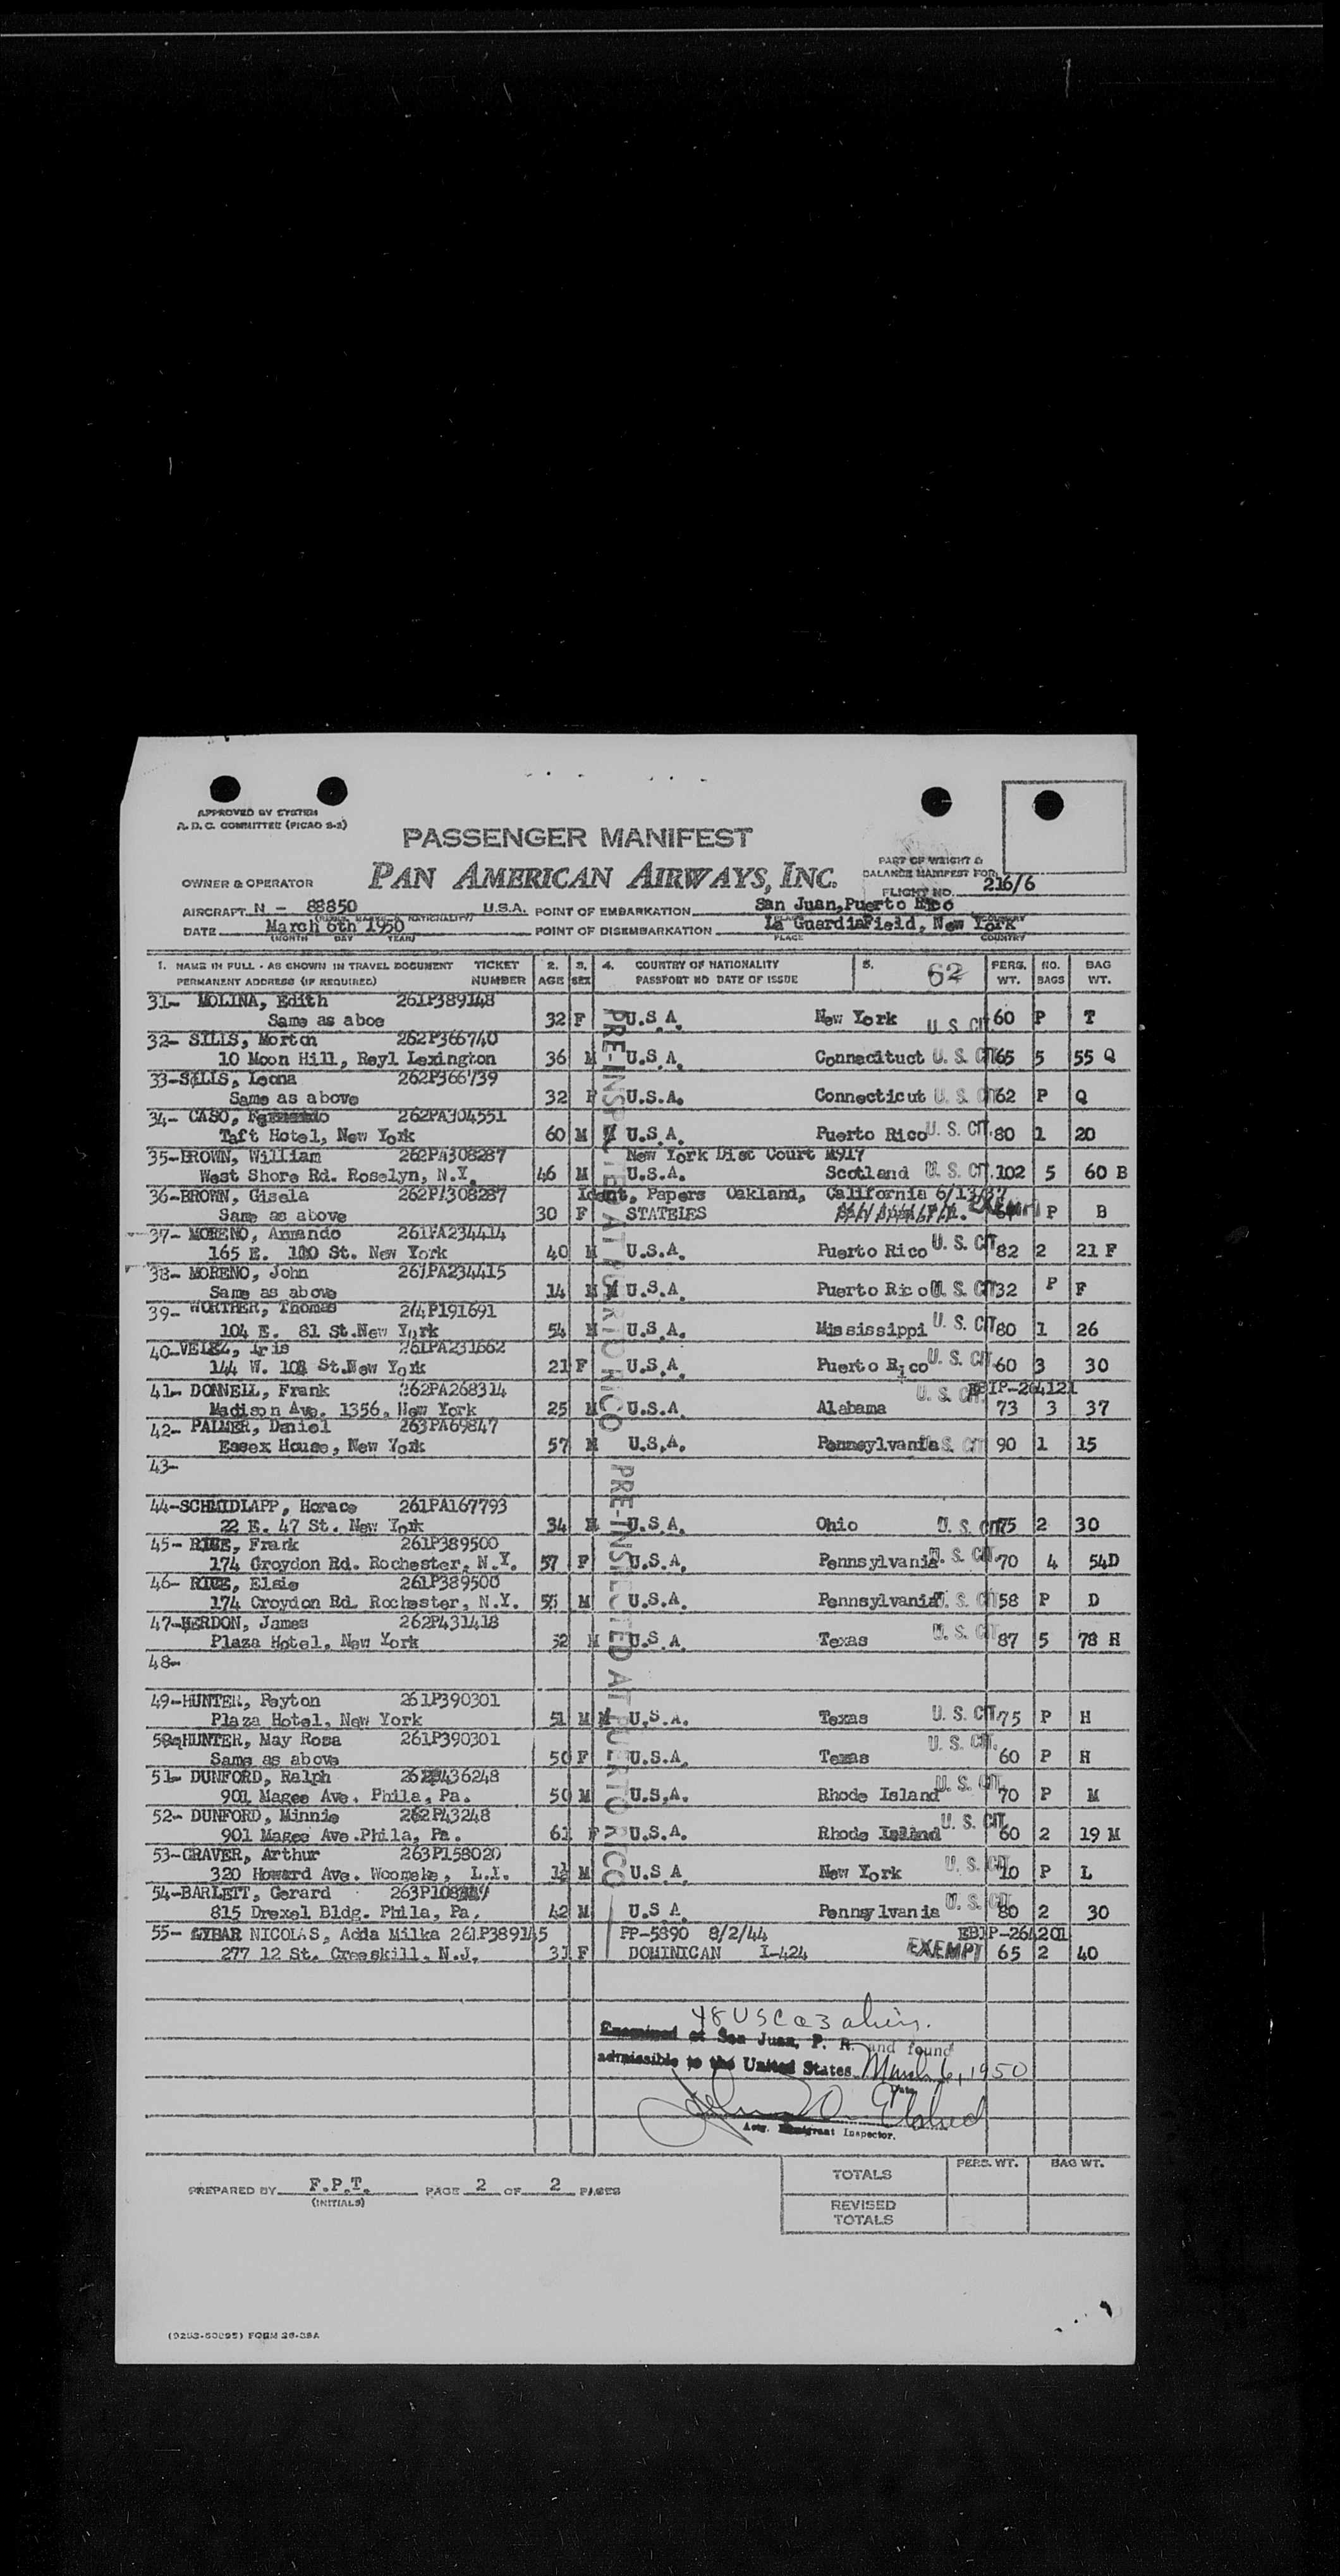 APPROVED BY SYSTEM
A. D. C. COMMITTEE (PICAO S-2)
PASSENGER MANIFEST
PART OF WEIGHT &
BALANCE MANIFEST FOR
OWNER & OPERATOR PAN AMERICAN AIRWAYS, INC. FLIGHT NO. 216/6
AIRCRAFT N - 88850 U.S.A. POINT OF EMBARKATION San Juan, Puerto Rico
DATE March 6th 1950 POINT OF DISEMBARKATION La GuardiaField, New York
(MONTH DAY YEAR) PLACE COUNTRY
1. NAME IN FULL - AS SHOWN IN TRAVEL DOCUMENT TICKET 2. 3. 4. COUNTRY OF NATIONALITY 5. 62 PERS. NO. BAG
PERMANENT ADDRESS (IF REQUIRED) NUMBER AGE SEX PASSPORT NO DATE OF ISSUE WT. BAGS WT.
31- MOLINA, Edith 261P389148
Same as aboe 32 F U.S.A. New York U. S. CIT 60 P T
32- SILLS, Morton 262P366740
10 Moon Hill, Reyl Lexington 36 M U.S.A. Connecituct U. S. CIT 65 5 55 Q
33-SILLS, Leona 262P366739
Same as above 32 F U.S.A. Connecticut U. S. CIT 62 P Q
34- CASO, 262PA304551
Taft Hotel, New York 60 M U.S.A. Puerto Rico U. S. CIT. 80 1 20
35-BROWN, William 262PA308287 New York Dist Court M917
West Shore Rd. Roselyn, N.Y. 46 M U.S.A. Scotland U. S. CIT. 102 5 60 B
36-BROWN, Gisela 262PA308287 Ident, Papers Oakland, California 6/13/37
Same as above 30 F STATELES EXEMPT P B
37- MORENO, Armando 261PA234414
165 E. 100 St. New York 40 M U.S.A. Puerto Rico U. S. CIT 82 2 21 F
38- MORENO, John 261PA234415
Same as above 14 M U.S.A. Puerto Rico U. S. CIT 32 P F
39- WORTHER, Thomas 244P191691
104 E. 81 St.New York 54 M U.S.A. Mississippi U. S. CIT 80 1 26
40-VELEZ, Iris 261PA231662
144 W. 108 St.New York 21 F U.S.A. Puerto Rico U. S. CIT 60 3 30
41- DONNELL, Frank 262PA268314 U. S. CIT. EBIP-264121
Madison Ave. 1356, New York 25 M U.S.A. Alabama 73 3 37
42- PALMER, Daniel 263PA69847
Essex House, New York 57 M U.S.A. Pennsylvania U. S. CIT 90 1 15
43-
44-SCHMIDLAPP, Horace 261PA167793
22 E. 47 St. New York 34 M U.S.A. Ohio U. S. CIT 75 2 30
45- RICE, Frark 261P389500
174 Croydon Rd. Rochester, N.Y. 57 F U.S.A. Pennsylvania U. S. CIT. 70 4 54D
46- RICE, Elsie 261P389500
174 Croydon Rd. Rochester, N.Y. 55 M U.S.A. Pennsylvania U. S. CIT 58 P D
47-HERDON, James 262P431418
Plaza Hotel, New York 52 M U.S.A. Texas U. S. CIT 87 5 78 H
48-
49-HUNTER, Peyton 261P390301
Plaza Hotel, New York 51 M U.S.A. Texas U. S. CIT. 75 P H
50-HUNTER, May Rosa 261P390301 U. S. CIT.
Same as above 50 F U.S.A. Texas 60 P H
51- DUNFORD, Ralph 262P436248
901 Magee Ave. Phila, Pa. 50 M U.S.A. Rhode Island U. S. CIT. 70 P M
52- DUNFORD, Minnie 262P43248
901 Magee Ave.Phila, Pa. 61 F U.S.A. Rhode Island U. S. CIT. 60 2 19 M
53-CRAVER, Arthur 263P158020
320 Howard Ave. Woomeke, L.I. 1½ M U.S.A New York U. S. CIT. 10 P L
54-BARLETT, Gerard
815 Drexel Bldg. Phila, Pa. 42 M U.S A. Pennsylvania U. S. CIT. 80 2 30
55- GYBAR NICOLAS, Adda Milka 261P389145 PP-5890 8/2/44 EBIP-264201
277 12 St. Creeskill, N.J. 31 F DOMINICAN I-424 EXEMPT 65 2 40
PRE-INSPECTED AT PUERTO RICO
PRE-INSPECTED AT PUERTO RICO
48 USC a 3 aliens.
Examined at San Juan, P. R. and found
admissible to the United States March 6, 1950
Date
Actg. Immigrant Inspector.
PREPARED BY F.P.T. PAGE 2 OF 2 PAGES
(INITIALS)
PERS. WT. BAG WT.
TOTALS
REVISED
TOTALS